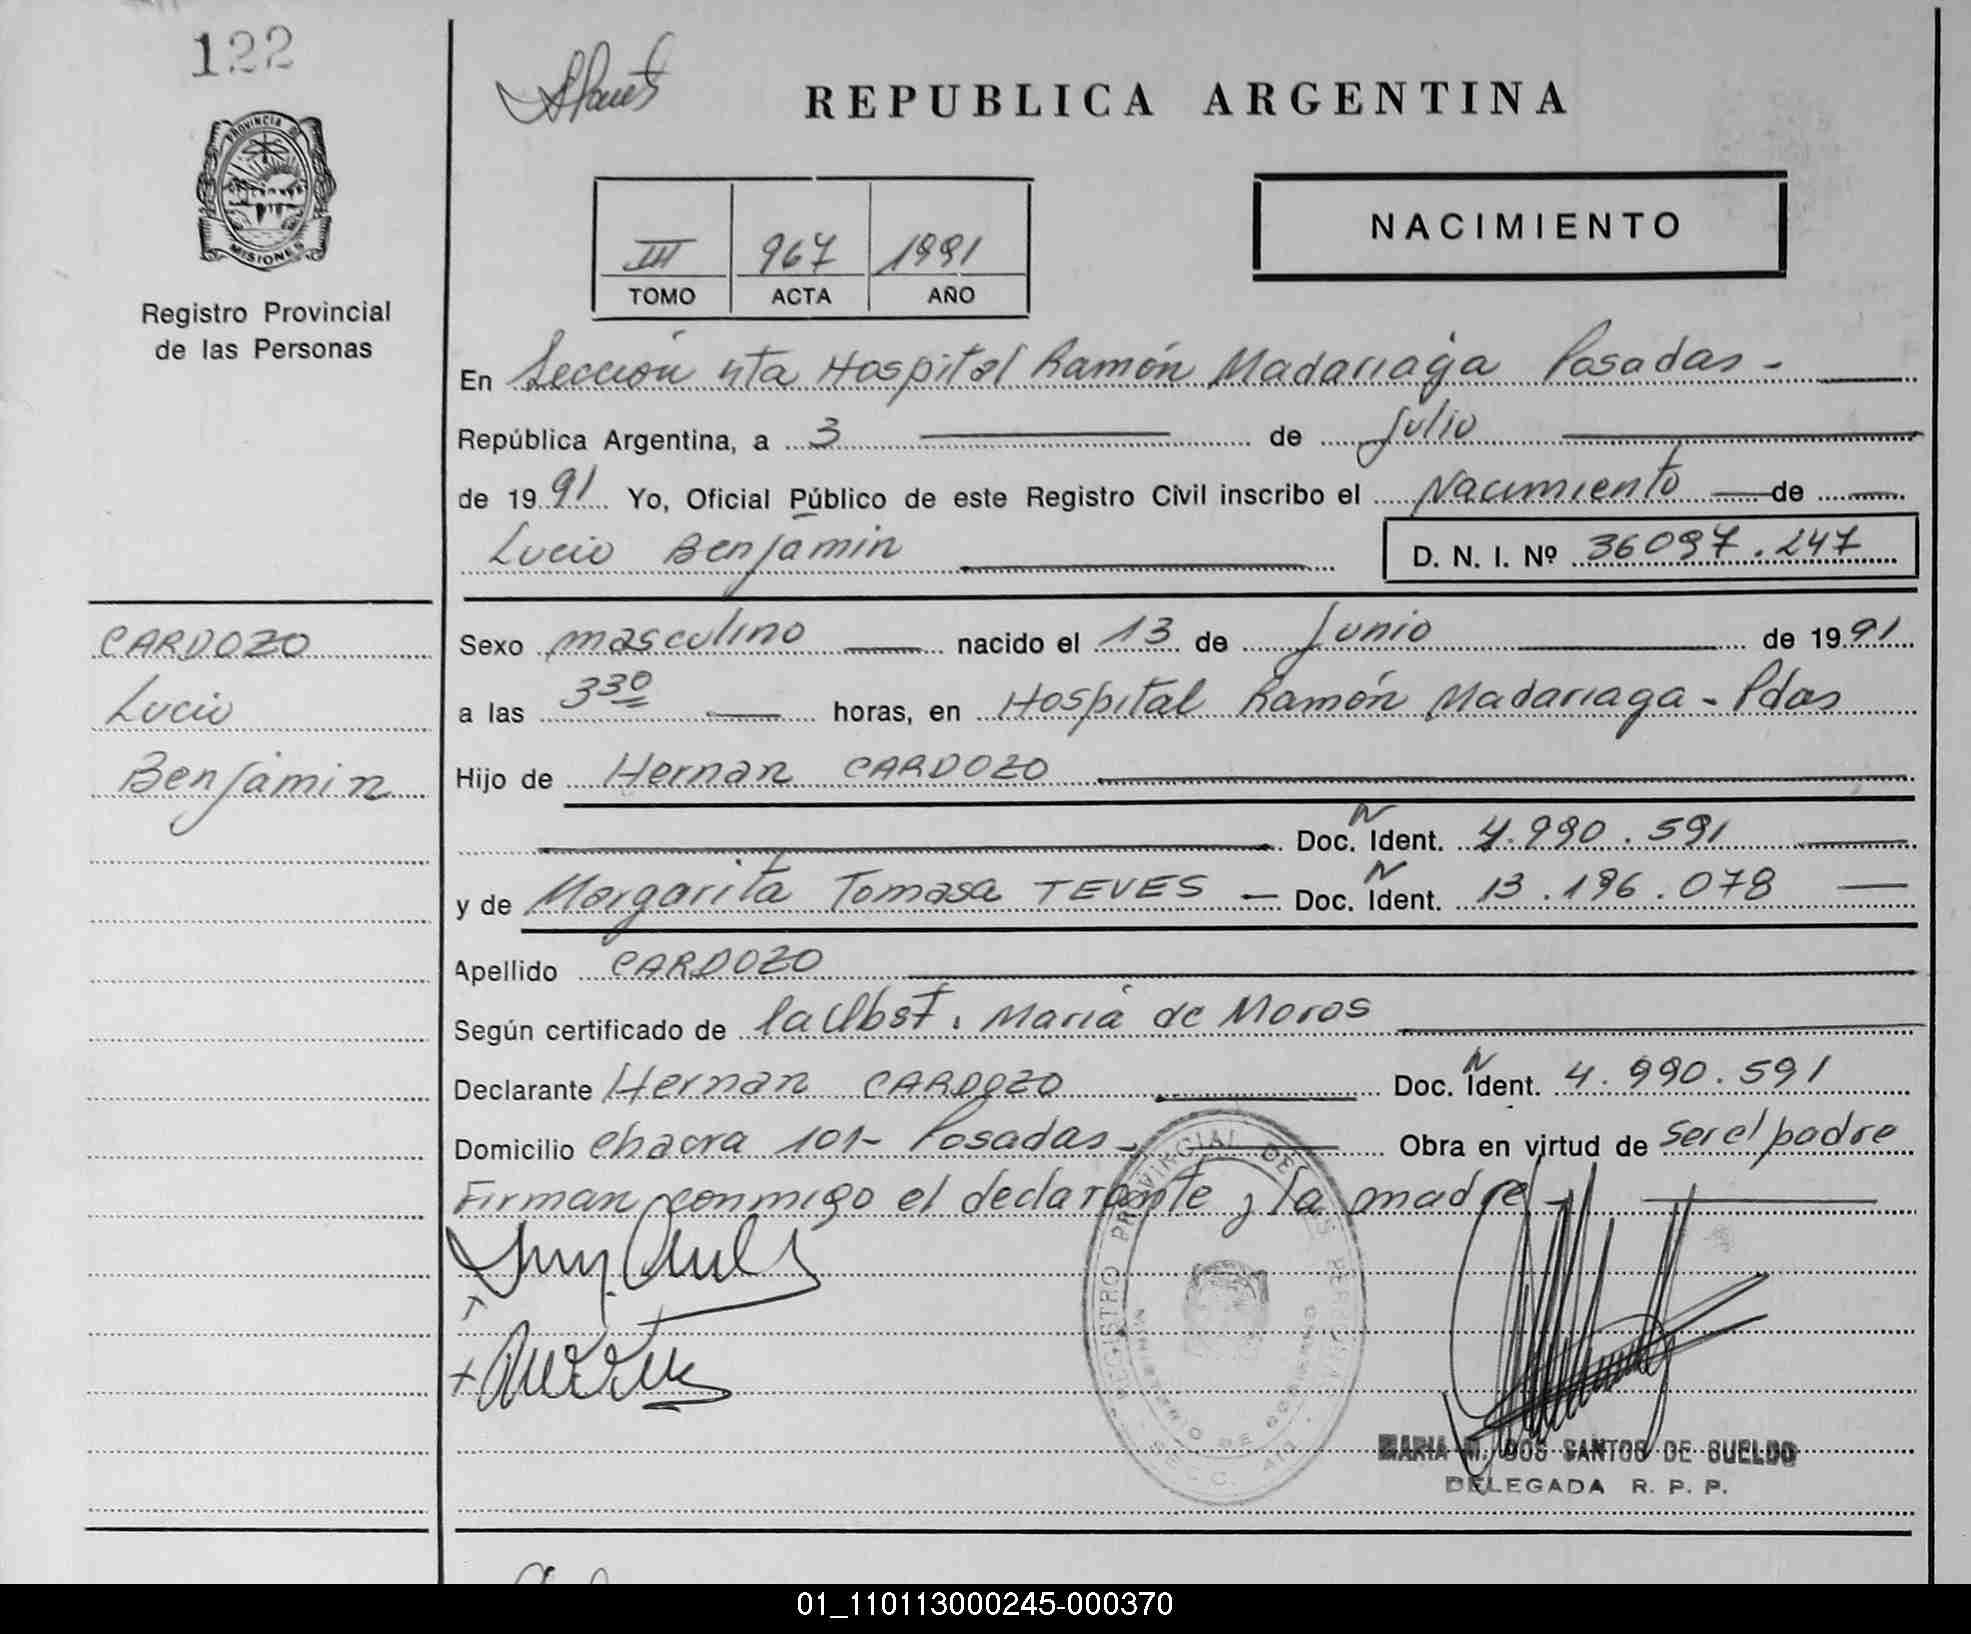 122
PROVINCIA DE
MISIONES
Registro Provincial
de las Personas
REPUBLICA ARGENTINA
III 967 1991
TOMO ACTA AÑO
NACIMIENTO
En Sección 4ta Hospital Ramón Madariaga Posadas -
República Argentina, a 3 de Julio
de 1991 Yo, Oficial Público de este Registro Civil inscribo el Nacimiento de
Lucio Benjamin D. N. I. Nº 36097.247
CARDOZO
Lucio
Benjamin
Sexo masculino nacido el 13 de Junio de 1991
a las 330 horas, en Hospital Ramón Madariaga - Pdas
Hijo de Hernan CARDOZO
N
Doc. Ident. 4.990.591
N
y de Margarita Tomasa TEVES - Doc. Ident. 13.196.078
Apellido CARDOZO
Según certificado de la Obst. Maria de Moros
N
Declarante Hernan CARDOZO Doc. Ident. 4.990.591
Domicilio chacra 101- Posadas - Obra en virtud de ser el padre
Firman conmigo el declarante y la madre -
REGISTRO PROVINCIAL DE LAS PERSONAS
MINISTERIO DE GOBIERNO
SECC. 4ta
MARIA M. DOS SANTOS DE SUELDO
DELEGADA R. P. P.
01_110113000245-000370